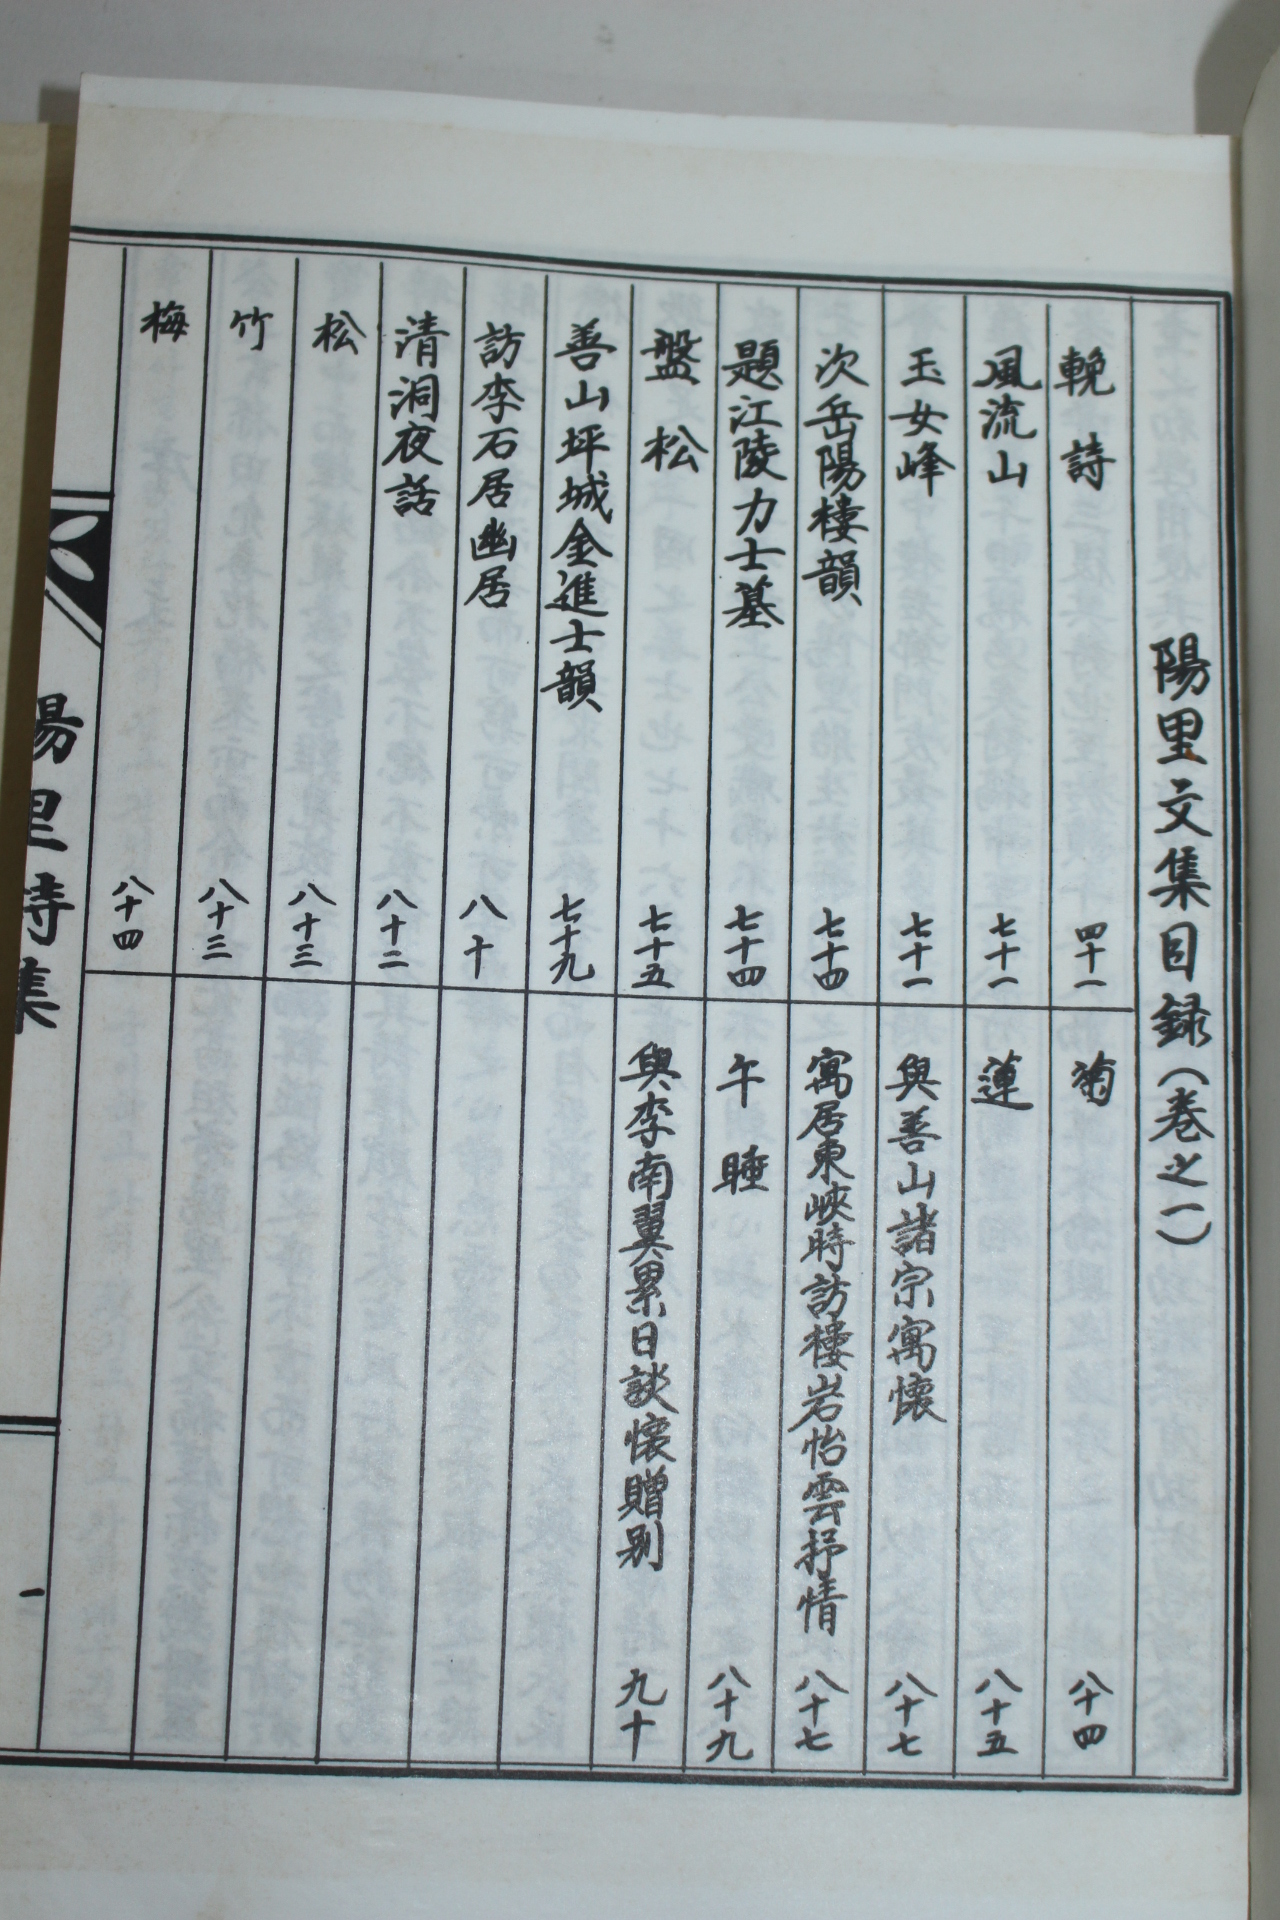 陽里文集目録(卷之一)
輓詩 四十一
風流山 七十一
玉女峰 七十一
次岳陽樓韻 七十四
題江陵力士墓 七十四
盤松 七十五
善山坪城金進士韻 七十九
訪李石居幽居 八十
清洞夜話 八十二
松 八十三
竹 八十三
梅 八十四
菊 八十四
蓮 八十五
與善山諸宗寓懷 八十七
寓居東峽時訪樓岩怡雲抒情 八十七
午睡 八十九
與李南翼累日談懷贈别 九十
陽里詩集
一